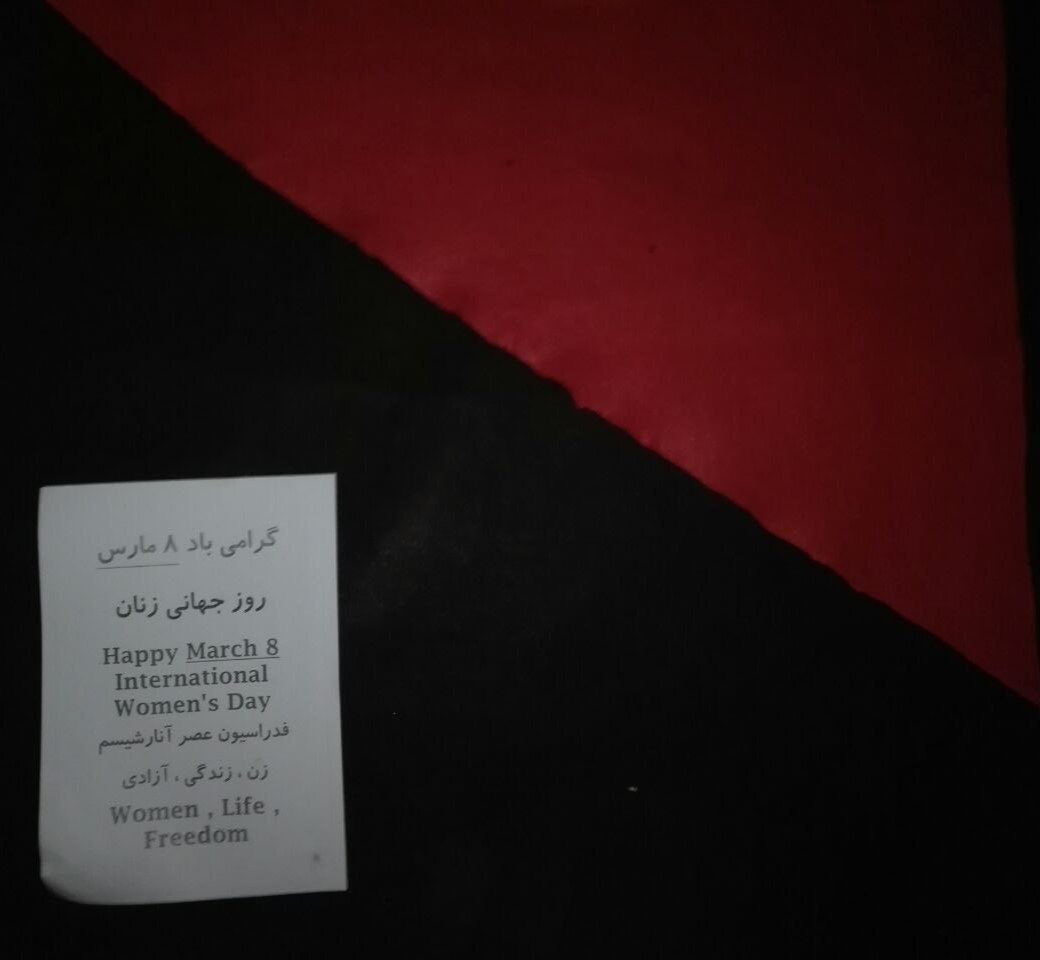 گرامی باد ۸ مارس
روز جهانی زنان
Happy March 8
International
Women's Day
فدراسیون عصر آنارشیسم
زن ، زندگی ، آزادی
Women , Life ,
Freedom